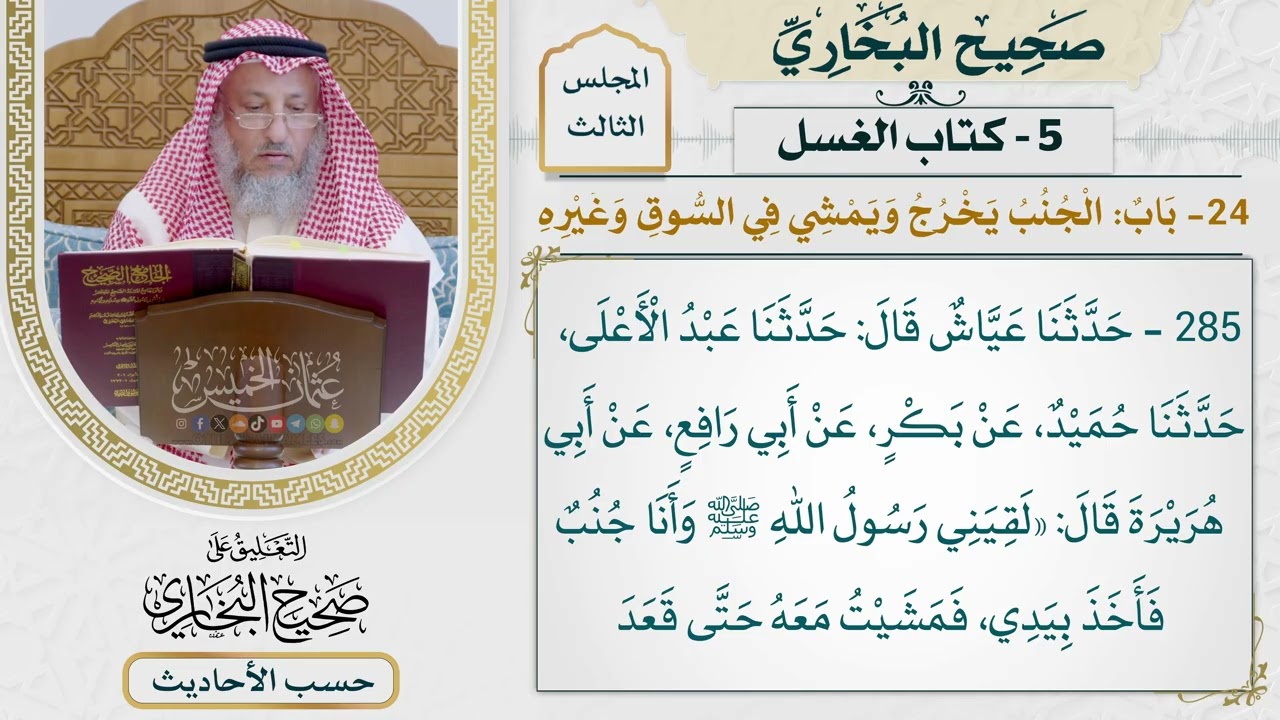 صَحِيح البُخَارِيِّ
المجلس
الثالث
5 - كتاب الغسل
24- بَابٌ: الْجُنُبُ يَخْرُجُ وَيَمْشِي فِي السُّوقِ وَغَيْرِهِ
285 - حَدَّثَنَا عَيَّاشٌ قَالَ: حَدَّثَنَا عَبْدُ الْأَعْلَى،
حَدَّثَنَا حُمَيْدٌ، عَنْ بَكْرٍ، عَنْ أَبِي رَافِعٍ، عَنْ أَبِي
هُرَيْرَةَ قَالَ: «لَقِيَنِي رَسُولُ اللهِ ﷺ وَأَنَا جُنُبٌ
فَأَخَذَ بِيَدِي، فَمَشَيْتُ مَعَهُ حَتَّى قَعَدَ
الجامع الصحيح
عثمان الخميس
التَّعْلِيقُ عَلَى
صَحِيحِ الْبُخَارِي
حسب الأحاديث